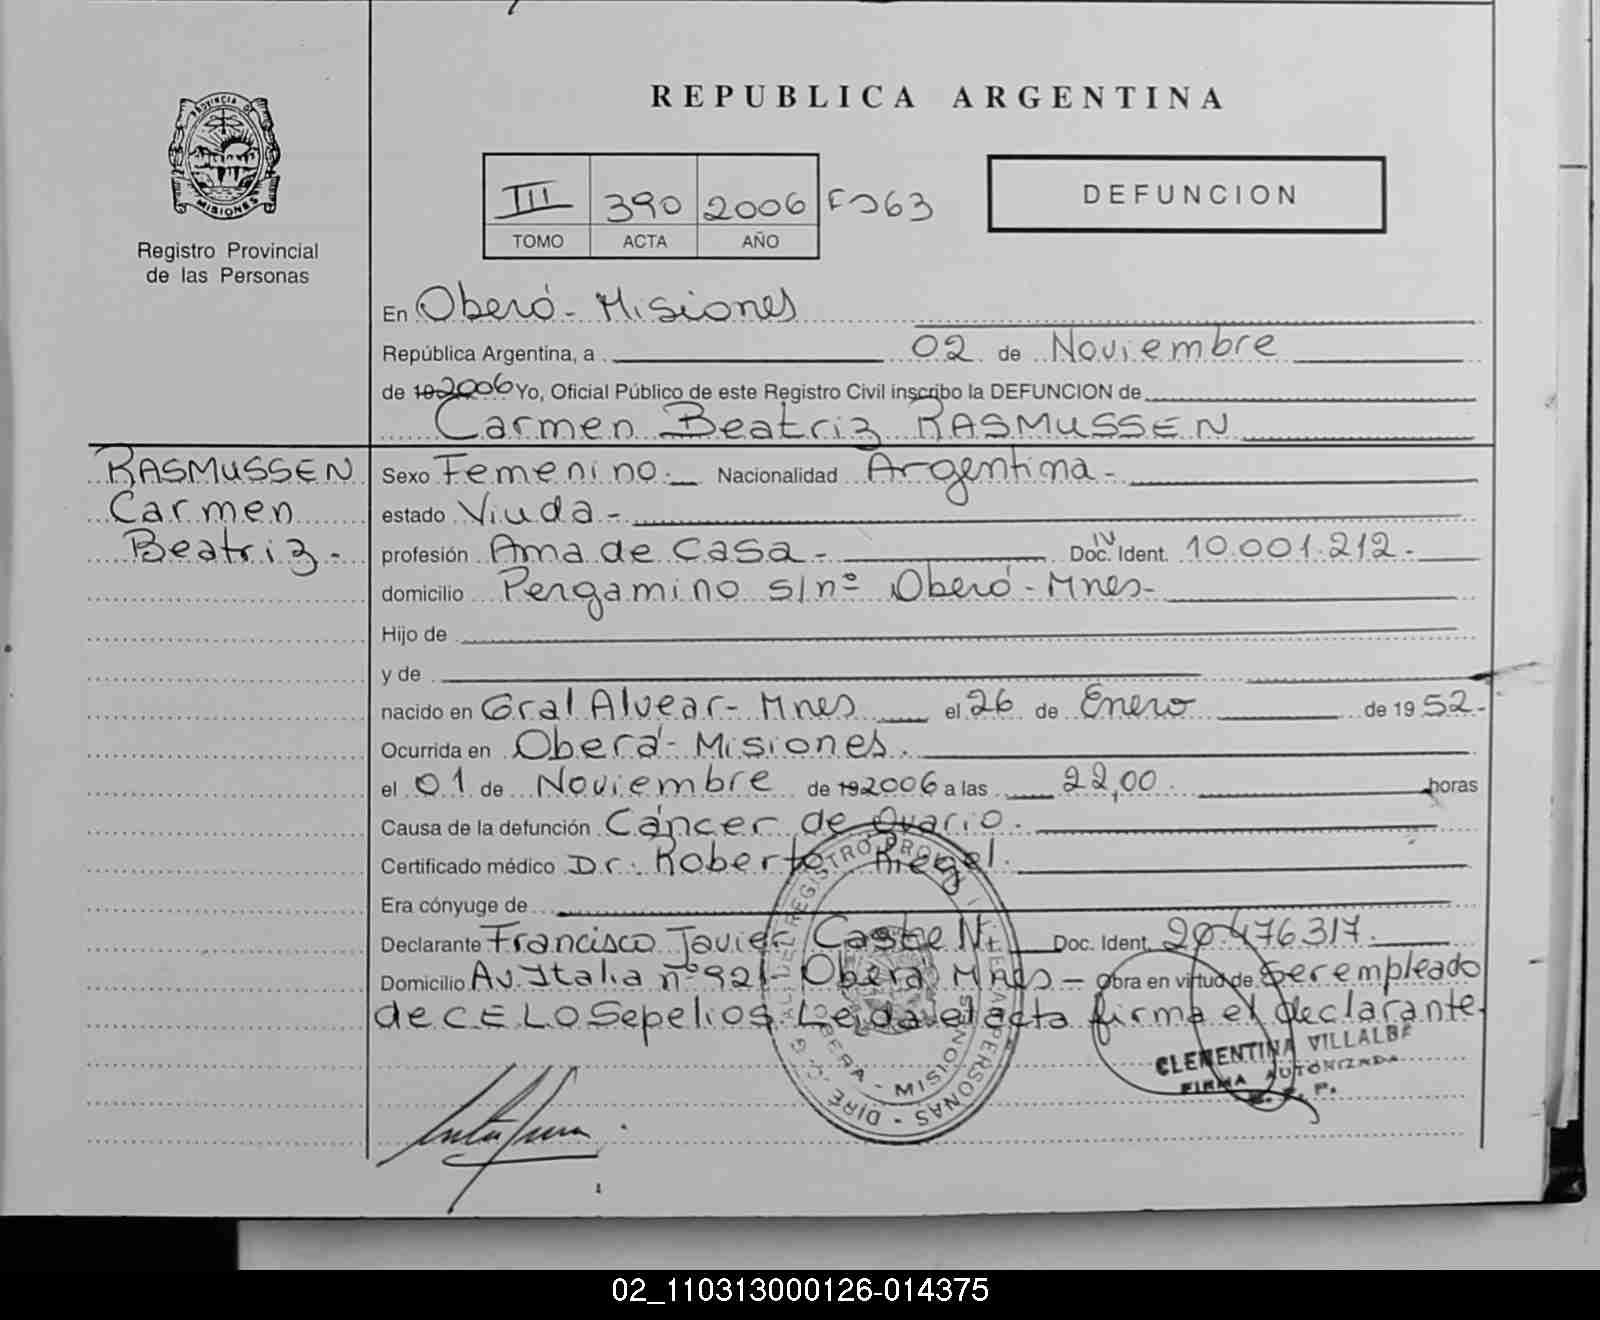 REPUBLICA ARGENTINA
PROVINCIA DE
MISIONES
Registro Provincial
de las Personas
III 390 2006 Fº 63
TOMO ACTA AÑO
DEFUNCION
En Oberá - Misiones
República Argentina, a 02 de Noviembre
de 19 2006 Yo, Oficial Público de este Registro Civil inscribo la DEFUNCION de
Carmen Beatriz RASMUSSEN
RASMUSSEN
Carmen
Beatriz -
Sexo Femenino.- Nacionalidad Argentina -
estado Viuda -
profesión Ama de Casa - Doc. Ident. 10.001.212 -
domicilio Pergamino s/nº Oberá - Mnes -
Hijo de
y de
nacido en Gral Alvear - Mnes el 26 de Enero de 19 52 -
Ocurrida en Oberá - Misiones.
el 01 de Noviembre de 19 2006 a las 22,00 horas
Causa de la defunción Cáncer de Ovario.
Certificado médico Dr. Roberto Riegel.
Era cónyuge de
Declarante Francisco Javier Doc. Ident. 20.476.317.
Domicilio Av. Italia nº 921 - Oberá Mnes - Obra en virtud de Ser empleado
de CELO Sepelios Leida el acta firma el declarante.
CLEMENTINA VILLALBA
FIRMA AUTORIZADA
R. P. P.
OBERA - MISIONES
02_110313000126-014375